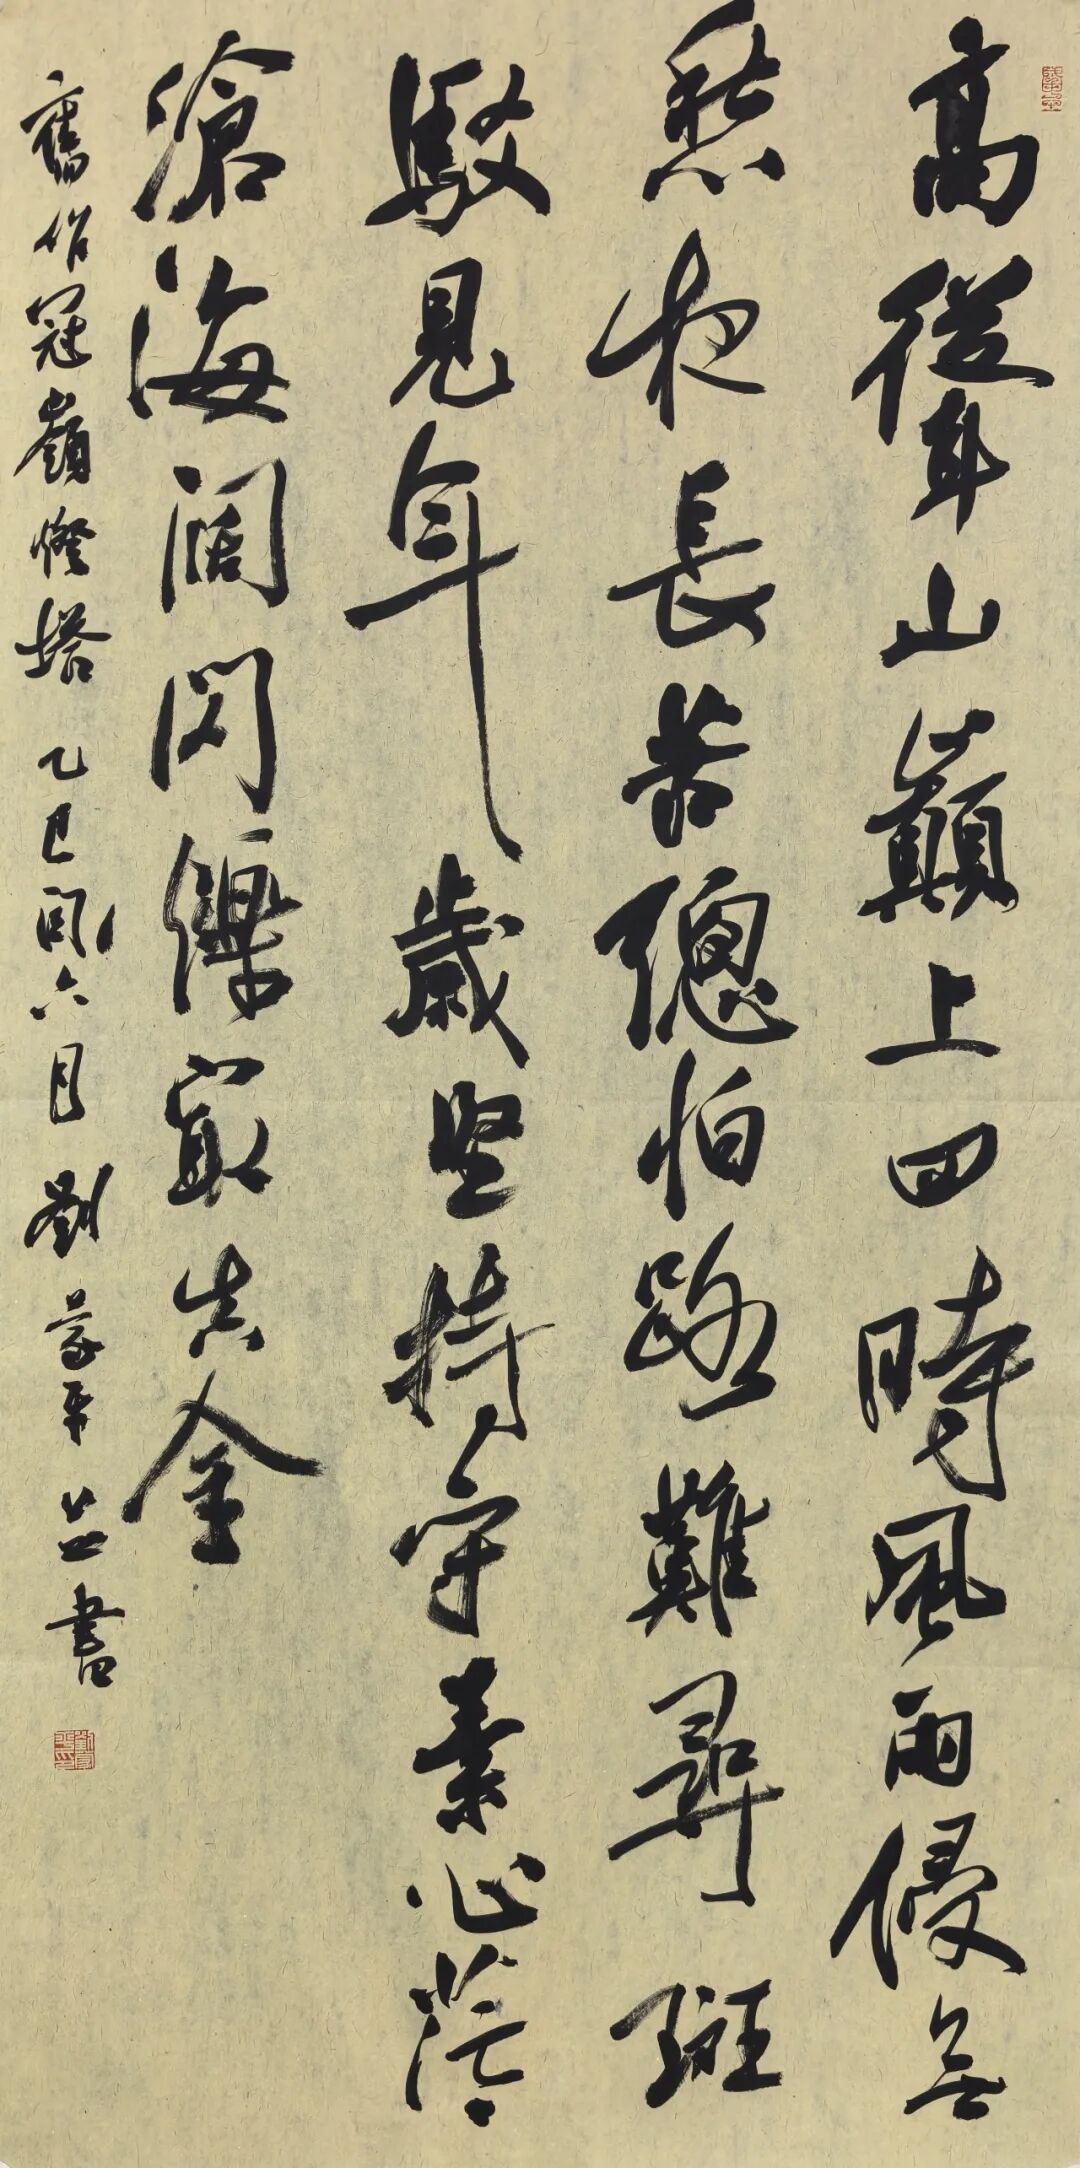 高聳山巔上四時風雨侵無
愁夜長苦總怕路難尋斑
駁見年歲堅持守素心茫〻
滄海闊閃爍最真金
舊作冠嶺燈塔 乙巳閏六月 劉 平並書